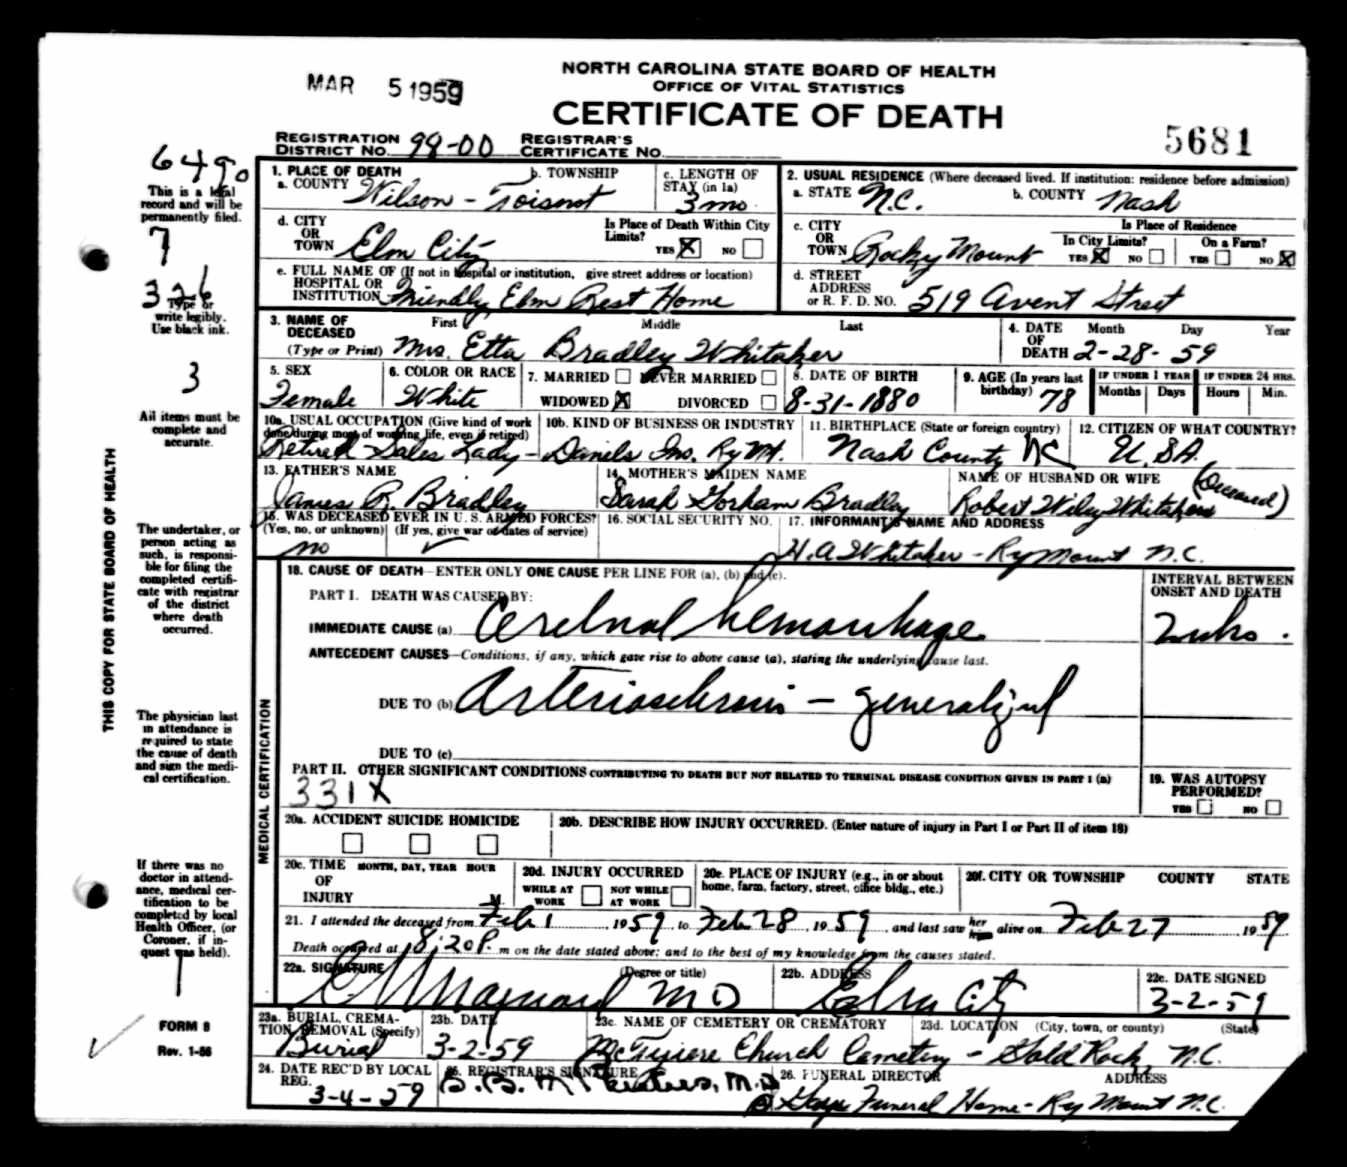 NORTH CAROLINA STATE BOARD OF HEALTH
OFFICE OF VITAL STATISTICS
MAR 5 1959
CERTIFICATE OF DEATH
5681
REGISTRATION DISTRICT NO. 98-00 REGISTRAR'S CERTIFICATE NO.
6490
This is a legal record and will be permanently filed.
7
326
Type or write legibly. Use black ink.
3
All items must be complete and accurate.
The undertaker, or person acting as such, is responsible for filing the completed certificate with registrar of the district where death occurred.
The physician last in attendance is required to state the cause of death and sign the medical certification.
If there was no doctor in attendance, medical certification to be completed by local Health Officer, (or Coroner, if inquest was held).
1
FORM 8
Rev. 1-56
THIS COPY FOR STATE BOARD OF HEALTH
1. PLACE OF DEATH
a. COUNTY Wilson - b. TOWNSHIP Toisnot
c. LENGTH OF STAY (in 1a) 3 mo.
2. USUAL RESIDENCE (Where deceased lived. If institution: residence before admission)
a. STATE N.C. b. COUNTY Nash
d. CITY OR TOWN Elm City
Is Place of Death Within City Limits? YES X NO
c. CITY OR TOWN Rocky Mount
Is Place of Residence In City Limits? YES X NO On a Farm? YES NO X
e. FULL NAME OF (If not in hospital or institution, give street address or location) HOSPITAL OR INSTITUTION Friendly Elm Rest Home
d. STREET ADDRESS or R. F. D. NO. 519 Avent Street
3. NAME OF DECEASED (Type or Print) First Middle Last
Mrs. Etta Bradley Whitaker
4. DATE OF DEATH Month Day Year 2-28-59
5. SEX Female
6. COLOR OR RACE White
7. MARRIED NEVER MARRIED WIDOWED X DIVORCED
8. DATE OF BIRTH 8-31-1880
9. AGE (In years last birthday) 78
IF UNDER 1 YEAR Months Days
IF UNDER 24 HRS. Hours Min.
10a. USUAL OCCUPATION (Give kind of work done during most of working life, even if retired) Retired - Sales Lady -
10b. KIND OF BUSINESS OR INDUSTRY Daniels Inc. Ry Mt.
11. BIRTHPLACE (State or foreign country) Nash County NC
12. CITIZEN OF WHAT COUNTRY? U.S.A.
13. FATHER'S NAME James R. Bradley
14. MOTHER'S MAIDEN NAME Sarah Gorham Bradley
NAME OF HUSBAND OR WIFE Robert Wiley Whitaker (Deceased)
15. WAS DECEASED EVER IN U. S. ARMED FORCES? (Yes, no, or unknown) (If yes, give war or dates of service) no
16. SOCIAL SECURITY NO.
17. INFORMANT'S NAME AND ADDRESS H. A. Whitaker - Ry Mount N.C.
MEDICAL CERTIFICATION
18. CAUSE OF DEATH—ENTER ONLY ONE CAUSE PER LINE FOR (a), (b) and (c).
INTERVAL BETWEEN ONSET AND DEATH
PART I. DEATH WAS CAUSED BY:
IMMEDIATE CAUSE (a) Cerebral hemorrhage
ANTECEDENT CAUSES—Conditions, if any, which gave rise to above cause (a), stating the underlying cause last.
DUE TO (b) Arteriosclerosis - generalized
DUE TO (c)
PART II. OTHER SIGNIFICANT CONDITIONS CONTRIBUTING TO DEATH BUT NOT RELATED TO TERMINAL DISEASE CONDITION GIVEN IN PART I (a)
331X
19. WAS AUTOPSY PERFORMED? YES NO
20a. ACCIDENT SUICIDE HOMICIDE
20b. DESCRIBE HOW INJURY OCCURRED. (Enter nature of injury in Part I or Part II of item 18)
20c. TIME OF INJURY MONTH, DAY, YEAR HOUR M.
20d. INJURY OCCURRED WHILE AT WORK NOT WHILE AT WORK
20e. PLACE OF INJURY (e.g., in or about home, farm, factory, street, office bldg., etc.)
20f. CITY OR TOWNSHIP COUNTY STATE
21. I attended the deceased from Feb 1 1959, to Feb 28, 1959, and last saw her him alive on Feb 27 1959.
Death occurred at 8:20 P. m on the date stated above; and to the best of my knowledge from the causes stated.
22a. SIGNATURE (Degree or title) MD
22b. ADDRESS Elm City
22c. DATE SIGNED 3-2-59
23a. BURIAL, CREMATION, REMOVAL (Specify) Burial
23b. DATE 3-2-59
23c. NAME OF CEMETERY OR CREMATORY McTyiere Church Cemetery -
23d. LOCATION (City, town, or county) (State) Gold Rock, N.C.
24. DATE REC'D BY LOCAL REG. 3-4-59
25. REGISTRAR'S SIGNATURE M.D.
26. FUNERAL DIRECTOR ADDRESS
Funeral Home - Ry Mount N.C.